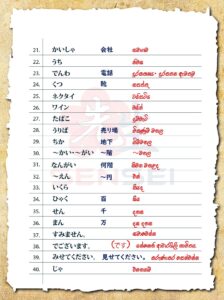 21. かいしゃ 会社 සමාගම
22. うち නිවස
23. でんわ 電話
24. くつ 靴 සපත්තු
25. ネクタイ ටයිපටිය
26. ワイン වයින්
27. たばこ දුම්වැටි
28. うりば 売り場
29. ちか 地下
30. ～かい・～がい ～階 ～මහල
31. なんがい 何階
32. ～えん ～円 යෙන්
33. いくら කීයද
34. ひゃく 百 සිය
35. せん 千 දහස
36. まん 万
37. すみません。 සමාවෙන්න
38. でございます。 (です)
39. みせてください。 見せてください。
40. じゃ එහෙනම්
SENSEI